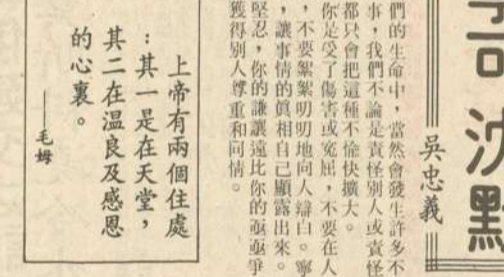 沈默
吳忠義
們的生命中，當然會發生許多不
事，我們不論是責怪別人或責怪
都只會把這種不愉快擴大。
你是受了傷害或冤屈，不要在人
，不要絮絮叨叨地向人辯白。寧
，讓事情的眞相自己顯露出來。
堅忍，你的謙讓遠比你的亟亟爭
獲得別人尊重和同情。
上帝有兩個住處
：其一是在天堂，
其二在温良及感恩
的心裏。
——毛姆